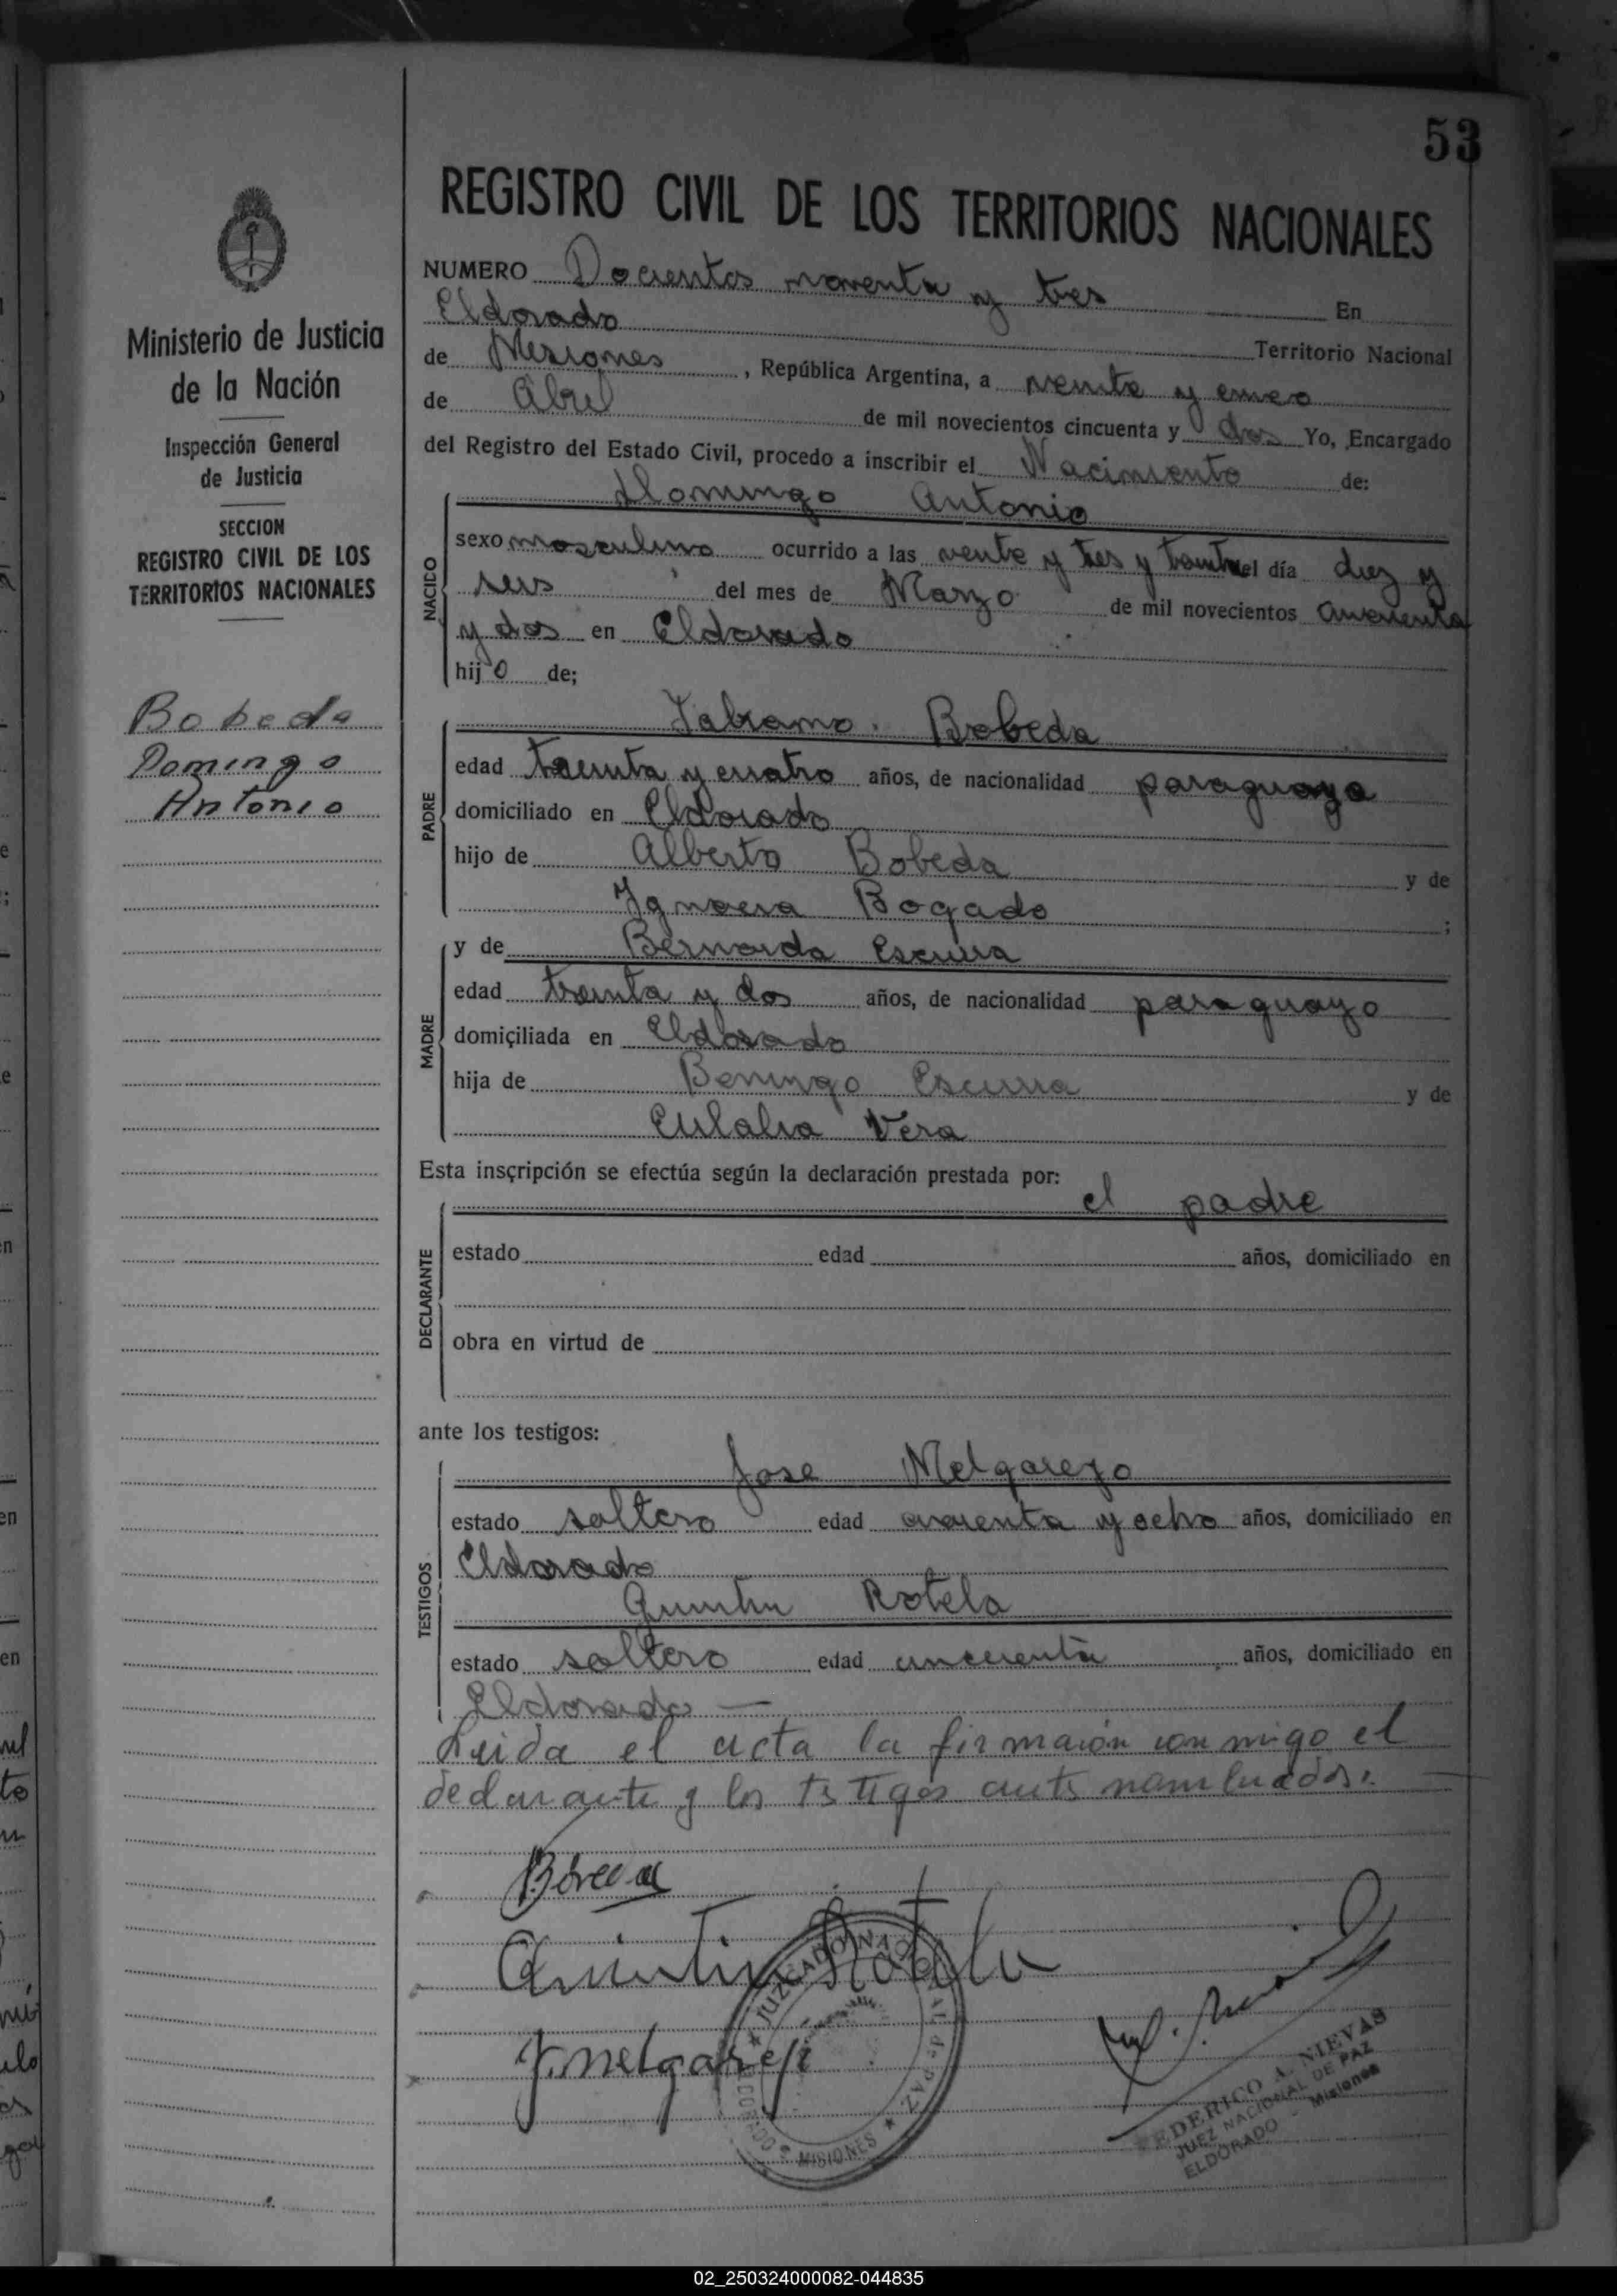 53
REGISTRO CIVIL DE LOS TERRITORIOS NACIONALES
Ministerio de Justicia
de la Nación
Inspección General
de Justicia
SECCION
REGISTRO CIVIL DE LOS
TERRITORIOS NACIONALES
Bobeda
Domingo
Antonio
NUMERO Docientos noventa y tres En
Eldorado Territorio Nacional
de Misiones, República Argentina, a veinte y cinco
de Abril de mil novecientos cincuenta y dos Yo, Encargado
del Registro del Estado Civil, procedo a inscribir el Nacimiento de:
Domingo Antonio
NACIDO
sexo masculino ocurrido a las veinte y tres y treinta el día diez y
seis del mes de Marzo de mil novecientos cincuenta
y dos en Eldorado
hijo de;
PADRE
Bobeda
edad treinta y cuatro años, de nacionalidad paraguaya
domiciliado en Eldorado
hijo de Alberto Bobeda y de
Ygnacia Bogado ;
MADRE
y de Bernarda Escurra
edad treinta y dos años, de nacionalidad paraguayo
domiciliada en Eldorado
hija de Beningo Escurra y de
Eulalia Vera
Esta inscripción se efectúa según la declaración prestada por:
el padre
DECLARANTE
estado edad años, domiciliado en
obra en virtud de
ante los testigos:
TESTIGOS
Jose Melgarejo
estado soltero edad cuarenta y ocho años, domiciliado en
Eldorado
Rotela
estado soltero edad cincuenta años, domiciliado en
Eldorado —
Leida el acta la firmaron conmigo el
declarante y los testigos ante nombrados.
Quintin Rotela
J. Melgarejo
JUZGADO NACIONAL de PAZ
ELDORADO MISIONES
FEDERICO A. NIEVAS
JUEZ NACIONAL DE PAZ
ELDORADO - Misiones
02_250324000082-044835